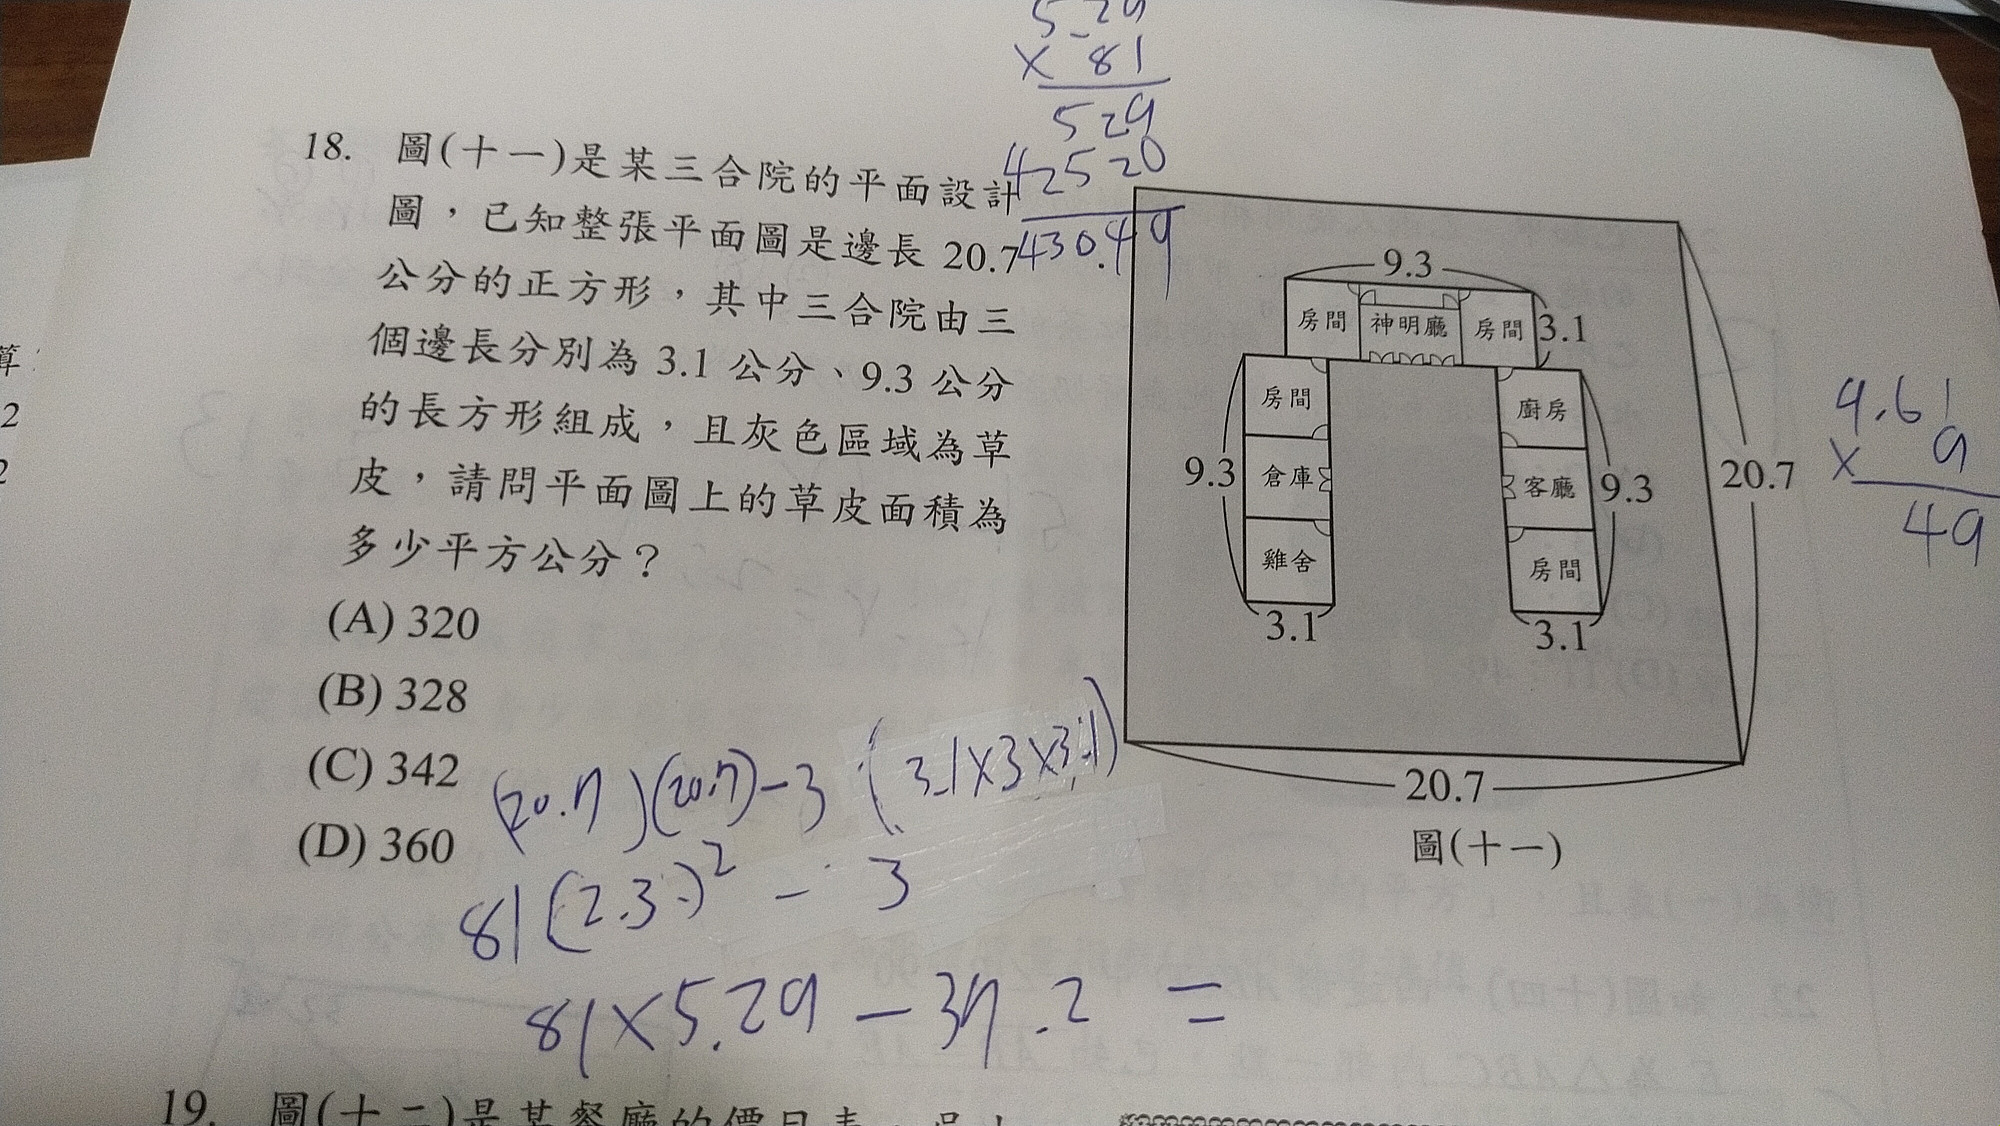 5.29
× 81
529
42520
430.49
18. 圖(十一)是某三合院的平面設計
圖，已知整張平面圖是邊長 20.7
公分的正方形，其中三合院由三
個邊長分別為 3.1 公分、9.3 公分
的長方形組成，且灰色區域為草
皮，請問平面圖上的草皮面積為
多少平方公分？
(A) 320
(B) 328
(C) 342
(D) 360
9.3
房間
神明廳
房間
3.1
房間
倉庫
雞舍
9.3
3.1
廚房
客廳
房間
9.3
3.1
20.7
20.7
圖(十一)
9.61
× 9
49
(20.7)(20.7)-3(3.1×3×3.1)
81(2.3)² - 3
81×5.29 - 37.2 =
19. 圖(十二)是某餐廳的價目表，